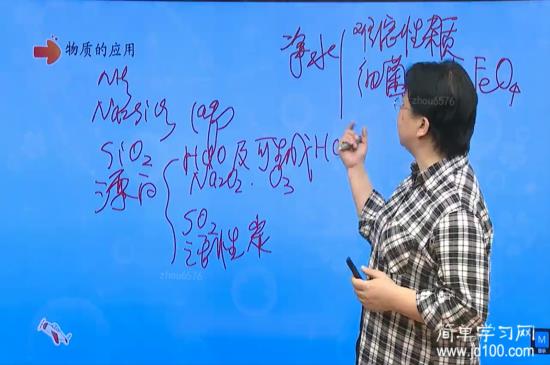 物质的应用
Na2SiO3 (aq)
SiO2
漂白
HClO 及可生成HC
Na2O2. O3
SO2
活性炭
净水
难溶性杂质
细菌
FeO4
zhou6576
zhou6576
简单学习网
www.jd100.com